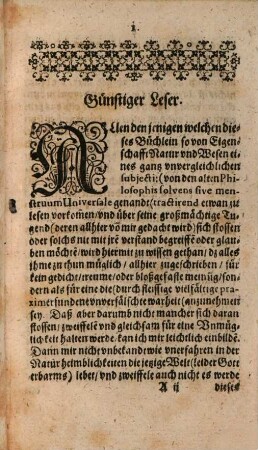 1.
Günstiger Leser.
ALlen den jenigen welchen die-
ses Büchlein so von Eigen-
schafft Natur vnd Wesen ei-
nes gantz vnvergleichlichen
subjecti: (von den alten Phi-
losophis solvens sive men-
struum Universale genandt (tractirend etwan zu
lesen vorkom̃en/ vnd über seine großmächtige Tu-
gend (deren allhier võ mir gedacht wird) sich stossen
oder solchs nit mit jrē verstand begreiffē oder glau-
ben möchtē/ wird hiermit zu wissen gethan/ dz alles
ihme zu thun müglich/ allhier zugeschrieben/ für
kein gedicht/ treum/ oder bloß gefaste meinūg/ son-
dern als für eine die/ (durch fleissige vielfältige pra-
xim erfundene vnverfälschte warheit (anzunehmen
sey. Daß aber darumb nicht mancher sich daran
stossen/ zweiffelē vnd gleichsam für eine Vnmüg-
lichkeit halten werde/ kan ich mir leichtlich einbildē.
Dann mir nicht vnbekandt wie vnerfahren in der
Natür heimblichkeiten die jetzige Welt (leider Gott
erbarms) lebet/ vnd zweiffele auch nicht es werde
A ij dieses